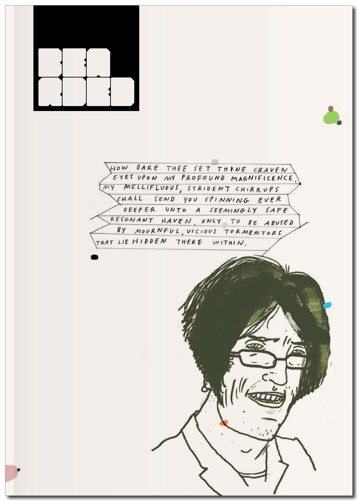 HOW DARE THEE SET THINE CRAVEN
EYES UPON MY PROFOUND MAGNIFICENCE
MY MELLIFLUOUS, STRIDENT CHIRRUPS
SHALL SEND YOU SPINNING EVER
DEEPER UNTO A SEEMINGLY SAFE
RESONANT HAVEN, ONLY TO BE ABUSED
BY MOURNFUL, VICIOUS TORMENTORS
THAT LIE HIDDEN THERE WITHIN.